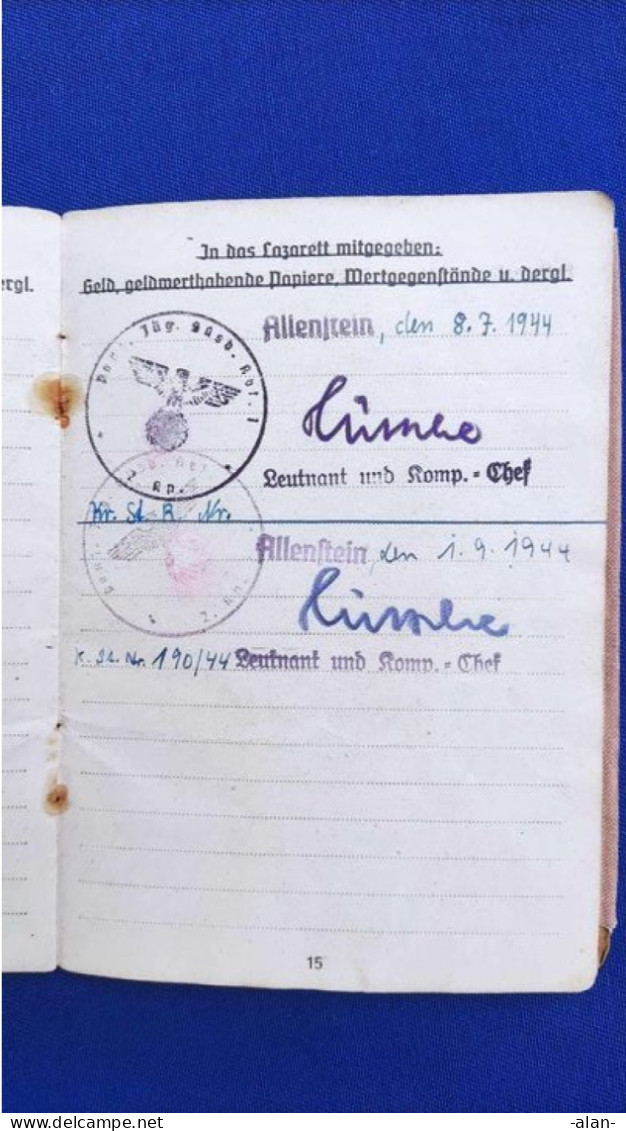 ergl.
In das Lazarett mitgegeben:
Geld, geldwerthabende Papiere, Wertgegenstände u. dergl.
Allenstein, den 8. 7. 1944
Leutnant und Komp.-Chef
Kr. St. R. Nr.
Allenstein, den 1. 9. 1944
K. St. Nr. 190/44 Leutnant und Komp.-Chef
15
-alan-